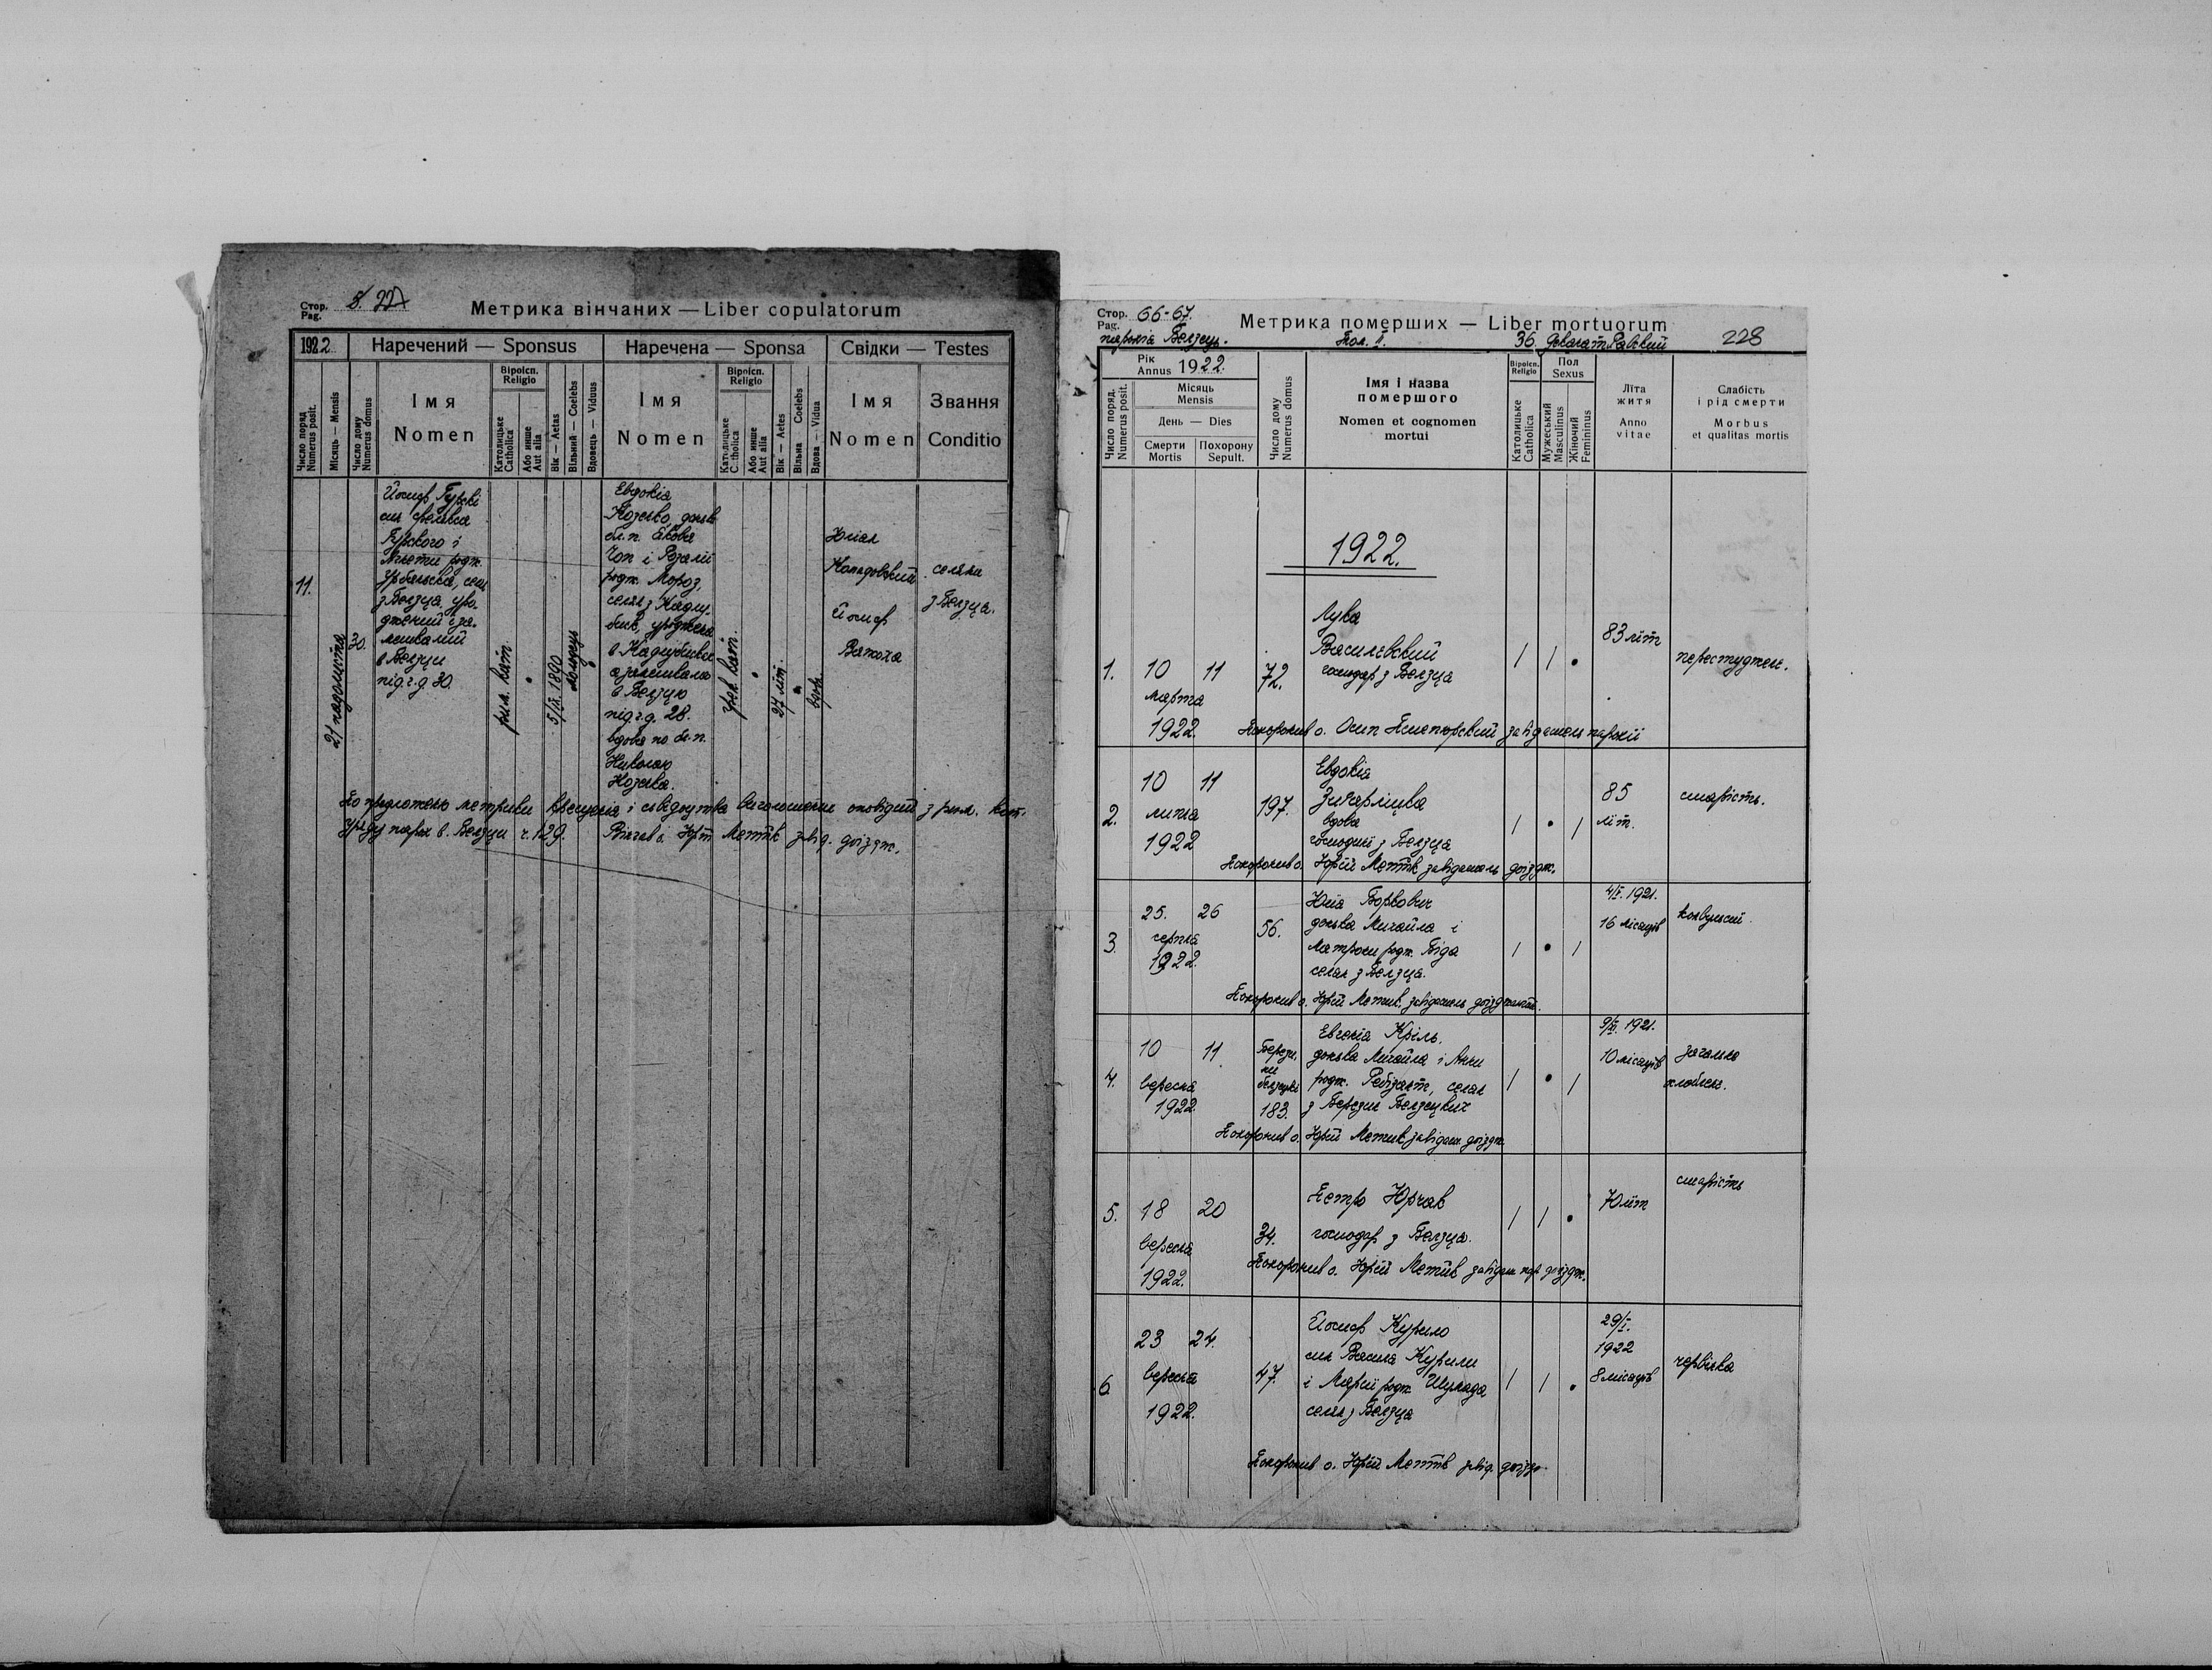 Стор. Pag. 8. 227
Метрика вінчаних — Liber copulatorum
1922
Наречений — Sponsus
Наречена — Sponsa
Свідки — Testes
Число поряд. Numerus posit.
Місяць — Mensis
Число дому Numerus domus
Імя
Nomen
Віроісп. Religio
Католицьке Catholica
Або инше Aut alia
Вік — Aetas
Вільний — Coelebs
Вдовець — Viduus
Імя
Nomen
Віроісп. Religio
Католицьке Catholica
Або инше Aut alia
Вік — Aetes
Вільна Coelebs
Вдова — Vidua
Імя
Nomen
Звання
Conditio
11.
21 падолиста
30.
Йосиф Гурскі
син
Гурского і
родж.
з Белзця, уро-
джений і за-
мешкалий
в Белзци
під ч. д. 30.
рим. кат.
5/IX. 1890
Евдокія
Козьва, донька
бл. п. Якова
Чоп і Розалії
родж. Мороз,
селян з
уроджена
а замешкала
в Белзцю
під ч. д. 28.
вдова по бл. п.
Николаю
Козьва.
грек. кат.
37 літ.
вдова
Юліан
Йосиф
селяни
з Белзця.
По предложеню метрики крещенія і свідоцтва виголошення оповідий з рим. кат.
уряду парох. в Белзци ч. 129. Вінчав о. Юрій завід. доїздж.
Стор. Pag. 66-67.
Метрика померших — Liber mortuorum
228
парохія Белзець.
Пол. II.
36. Деканат Равский
Рік Annus 1922.
Число поряд. Numerus posit.
Місяць Mensis
День — Dies
Смерти Mortis
Похорону Sepult.
Число дому Numerus domus
Імя і назва
помершого
Nomen et cognomen
mortui
Віроісп. Religio
Католицьке Catholica
Пол Sexus
Мужеський Masculinus
Жіночий Femininus
Літа
житя
Anno
vitae
Слабість
і рід смерти
Morbus
et qualitas mortis
1922.
1. 10 11
марта
1922
72.
Лука
Василевский
господар з Белзця
83 літ
перестуджен.
Похоронив о. Осип завідатель парохії
2. 10 11
липня
1922
197.
Евдокія
вдова
господині з Белзця
85
літ.
старість.
Похоронив о. Юрій завідатель доїздж.
3. 25. 26
серпня
1922.
56.
Юлія Боркович
донька Михайла і
Матрони родж. Біда
селян з Белзця.
4/V. 1921.
16 місяців
конвульсії.
Похоронив о. Юрій завідатель
4. 10 11.
вересня
1922.
183.
Евгенія Кріль.
донька Михайла і Анни
родж. селян
з Березин Белзецких
9/XI. 1921.
10 місяців
загальне
ослаблен.
Похоронив о. Юрій завідат. доїздж.
5. 18 20
вересня
1922.
34.
Петро Юрчак
господар з Белзця.
70 літ
старість
Похоронив о. Юрій завідат. пар. доїздж.
6. 23 24.
вересня
1922.
47.
Йосиф Курило
син Василя Курили
і Марії родж.
селян з Белзця
29/I.
1922
8 місяців
червінка
Похоронив о. Юрій завід. доїздж.